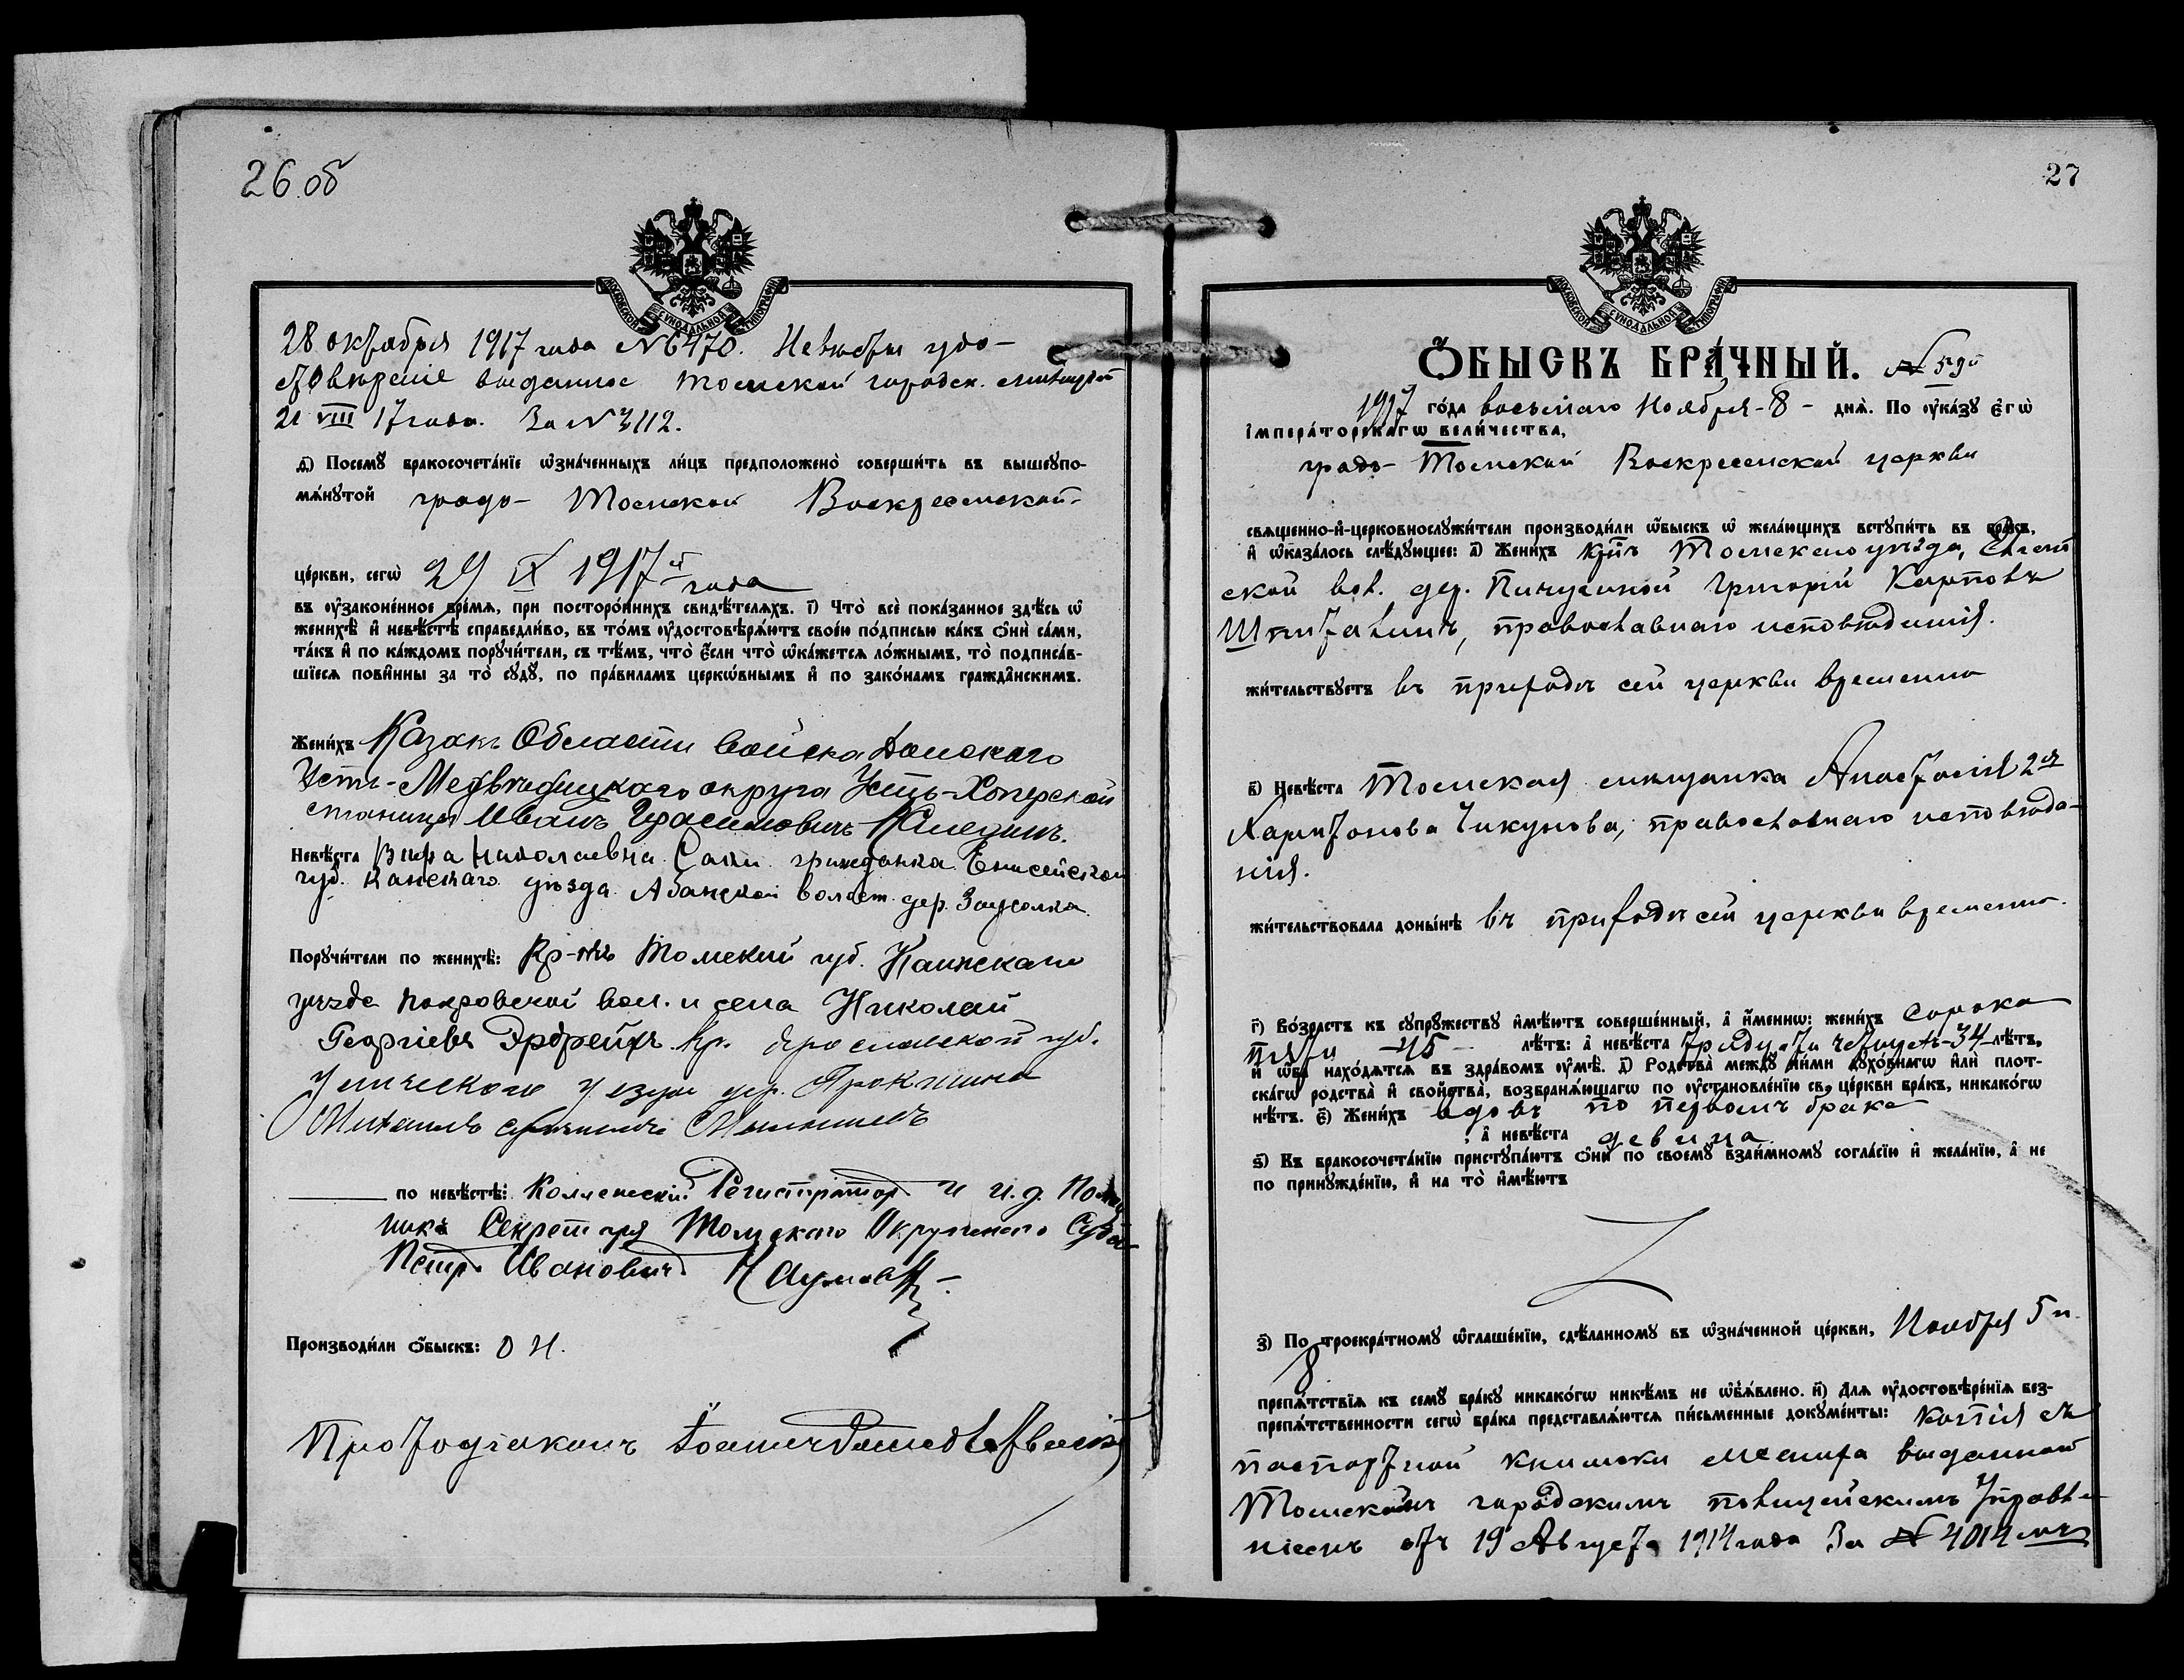 26 об
МОСКОВСКОЙ СѴНОДАЛЬНОЙ ТИПОГРАФІИ
28 октября 1917 года № 6470. Невѣсты удо-
стовѣреніе выданное Томской городск. милиціей
21 VIII 17 года. За № 3112.
д҃і) Посемꙋ бракосочетаніе ѡзначенныхъ лицъ предположено совершить въ вышеꙋпо-
мѧнꙋтой градо- Томской Воскресенской-
церкви, сегѡ 29 IX 1917 года
въ ᲂузаконенное времѧ, при постороннихъ свидѣтелѧхъ. і҃) Что все показанное здѣсь ѡ
женихѣ и невѣстѣ справедливо, въ томъ ᲂудостовѣрѧютъ своею подписью какъ ѻни сами,
такъ и по каждомъ порꙋчители, съ тѣмъ, что если что ѡкажетсѧ ложнымъ, то подписав-
шіесѧ повинны за то сꙋдꙋ, по правиламъ церкѡвнымъ и по законамъ гражданскимъ.
Женихъ Казакъ Области Войска Донского
Усть-Медвѣдицкаго округа Усть-Хоперской
станицы Иванъ Герасимовичъ Каледин.
Невѣста Вера Николаевна гражданка Енисейской
губ. Канскаго уѣзда Абанской волост. дер.
Порꙋчители по женихѣ: Кр-нъ Томской губ. Каинскаго
уѣзда Покровской вол. и села Николай
Георгіевъ Кр. Ярославской губ.
уезда дер.
Михаилъ
по невѣстѣ: Коллежскій Регистраторъ и и.д. Помощ
ника Секретаря Томскаго Окружного Суда
Петръ Ивановичъ Наумовъ
Производили ѻбыскъ: о н.
Протодіаконъ
27
МОСКОВСКОЙ СѴНОДАЛЬНОЙ ТИПОГРАФІИ
ѺБЫСКЪ БРАЧНЫЙ. № 59
1917 года восьмаго Ноября - 8 - днѧ. По ᲂуказꙋ егѡ
императорскагѡ величества,
градо- Томской Воскресенской церкви
свѧщенно-и-церковнослꙋжители производили ѻбыскъ ѡ желающихъ встꙋпить въ бракъ,
и ѡказалось слѣдꙋющее: а҃) Женихъ крнъ Томскаго уѣзда,
ской вол. дер. Григорій Карповъ
православнаго исповѣданія.
жительствꙋетъ въ приходѣ сей церкви временно
в҃) Невѣста Томская мѣщанка Анастасія 2я
Харитонова Чикунова, православнаго исповѣда-
нія.
жительствовала донынѣ въ приходѣ сей церкви временно.
г҃) Возрастъ къ сꙋпрꙋжествꙋ имѣютъ совершенный, а именнѡ: женихъ сорока
пяти - 45 - лѣтъ: а невѣста тридцати четырехъ - 34 - лѣтъ,
и ѻба находѧтсѧ въ здравомъ ᲂумѣ. д҃) Родства междꙋ ними дꙋховнагѡ или плот-
скагѡ родства и свойства, возбранѧющагѡ по ᲂустановленію св. церкви бракъ, никакогѡ
нѣтъ. е҃) Женихъ вдовъ по первомъ браке
, а невѣста девица
ѕ҃) Къ бракосочетанію пристꙋпаютъ ѻни по своемꙋ взаимномꙋ согласію и желанію, а не
по принꙋжденію, и на то имѣютъ
з҃) По троекратномꙋ ѡглашенію, сдѣланномꙋ въ ѡзначенной церкви, Ноября 5 и
8
препѧтствіѧ къ семꙋ бракꙋ никакогѡ никѣмъ не ѡбъѧвлено. и҃) Длѧ ᲂудостовѣреніѧ без-
препѧтственности сегѡ брака представлѧютсѧ письменные докꙋменты: копія съ
паспортной книжки жениха выданной
Томскимъ городскимъ полицейскимъ Управле-
ніемъ отъ 19 Августа 1914 года За № 4014